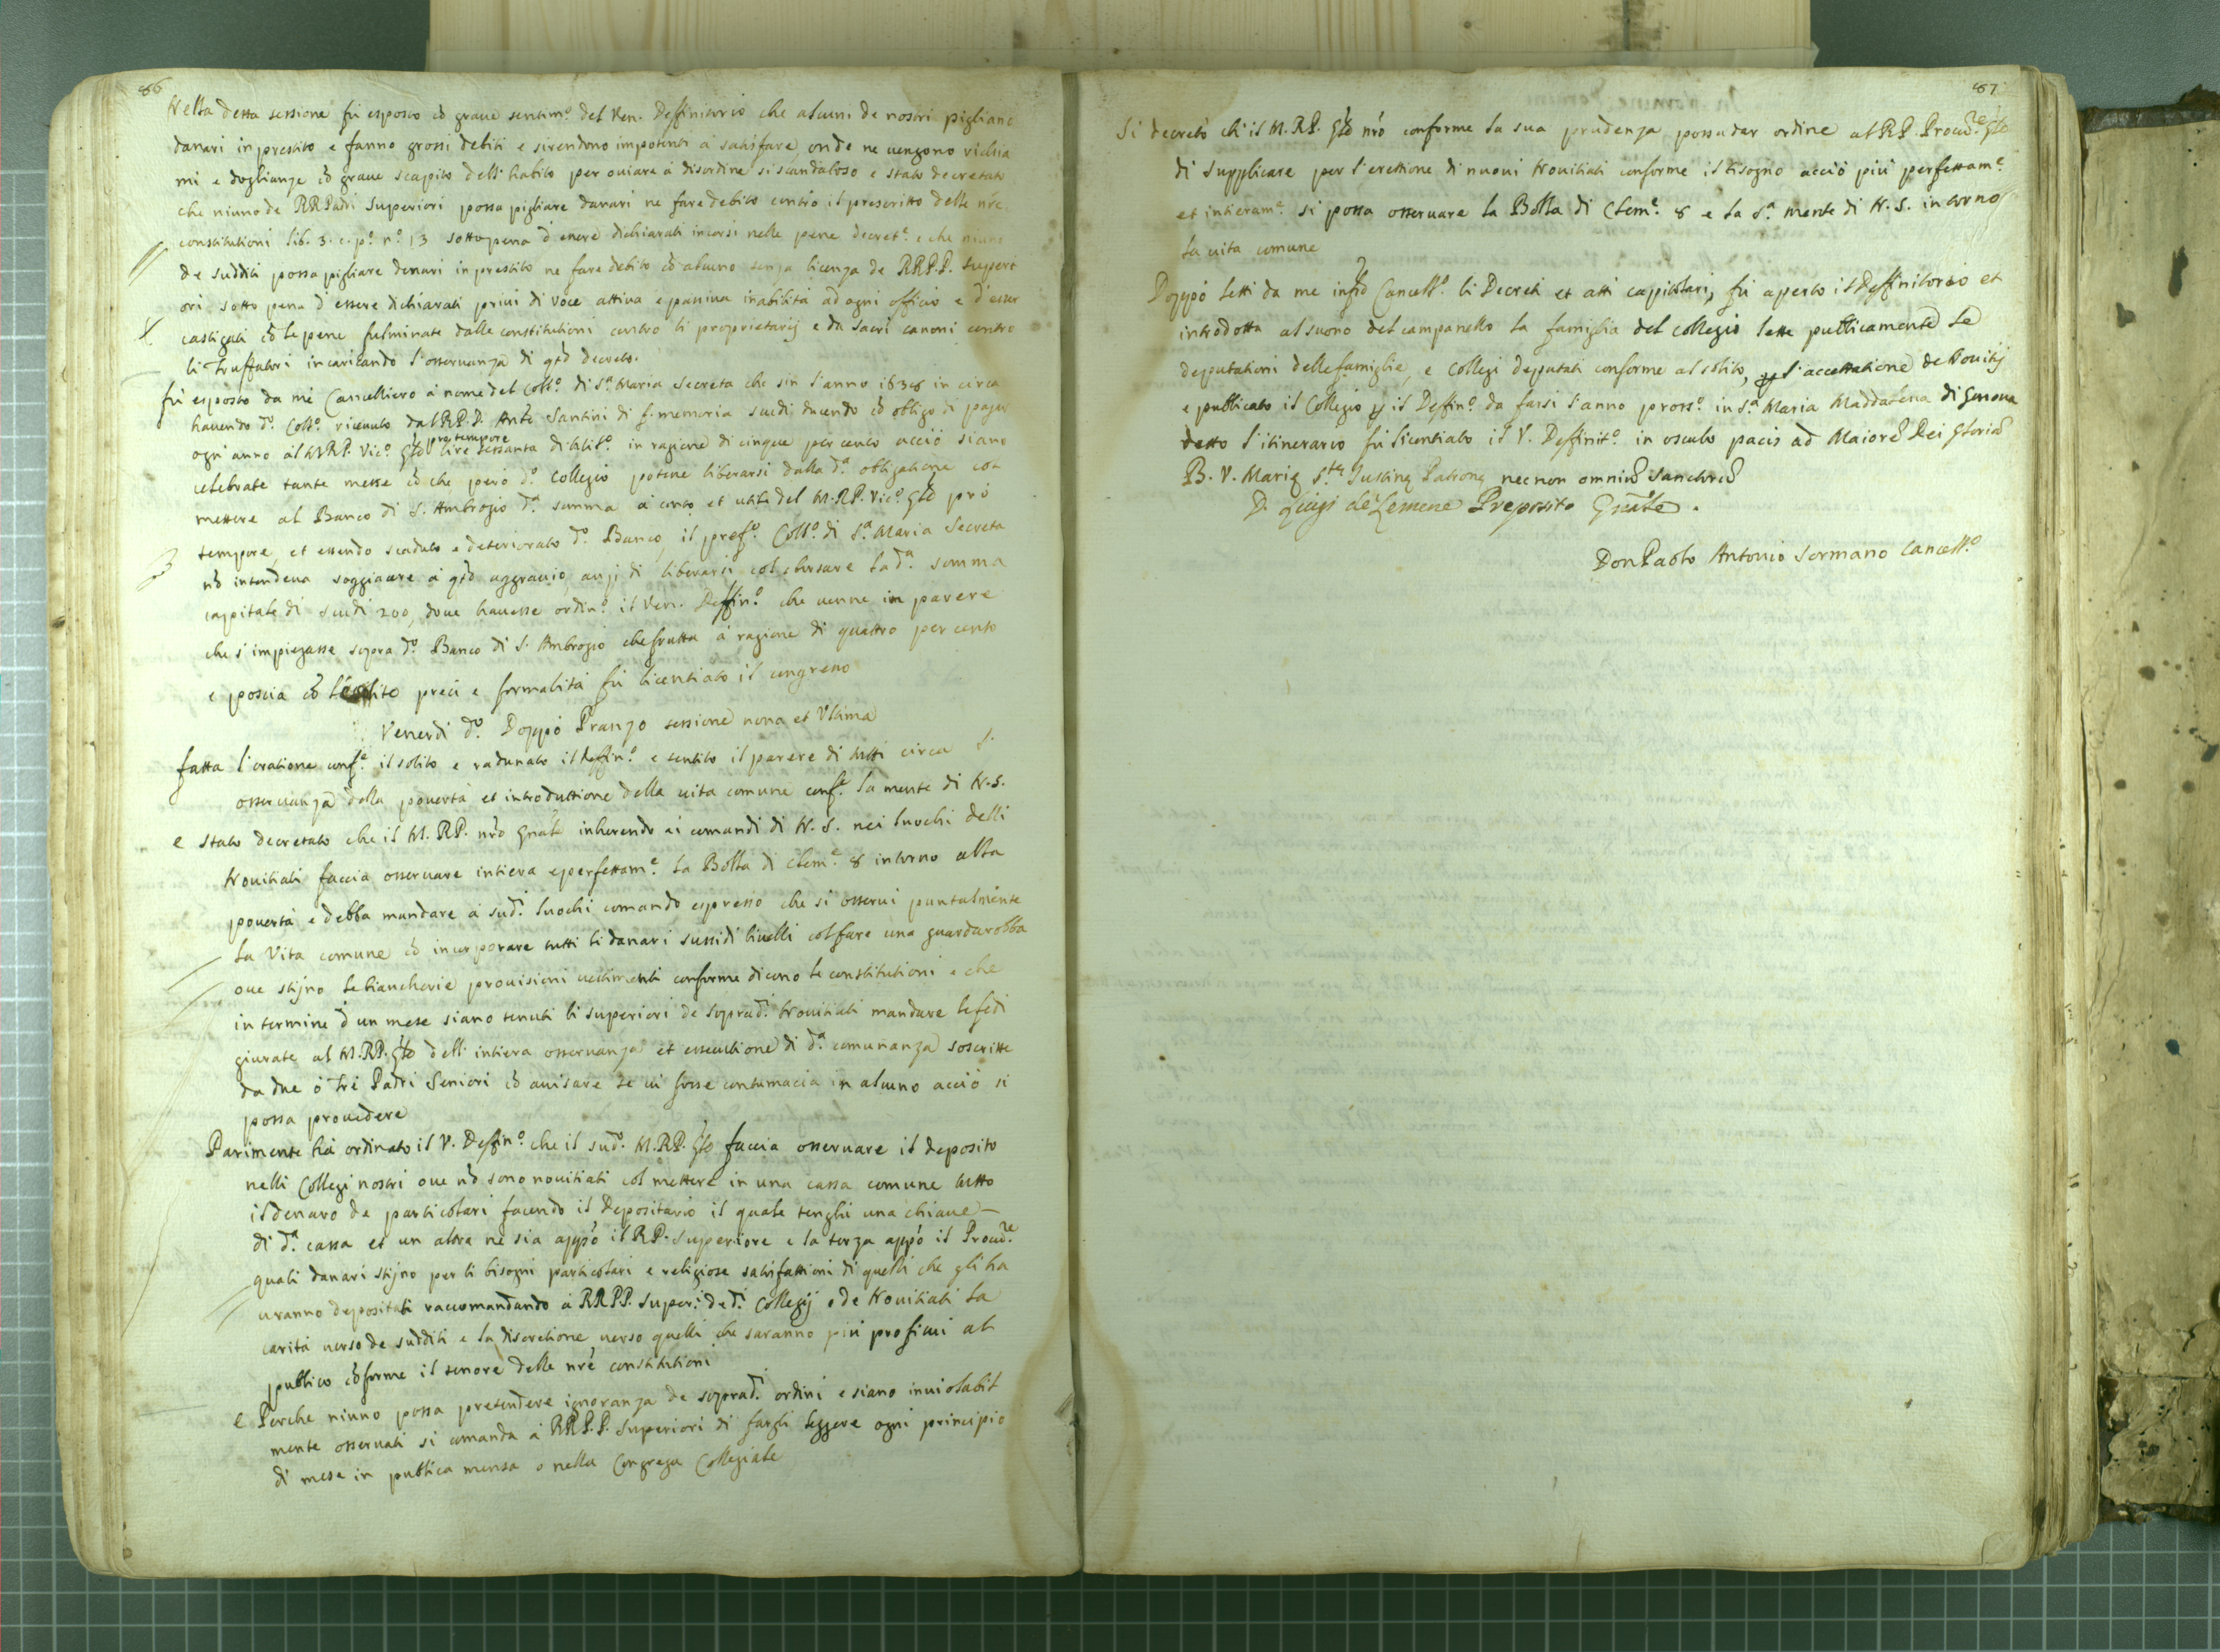 86
Nella detta sessione fù esposto cō graue sentim.º del Ven. Deffinitorio che alcuni de nostri pigliano
danari in prestito e fanno grossi debiti e si rendono impotenti à satisfare, onde ne uengono richia
mi e doglianze cō graue scapito dell'habito per ouiare à disordine si scandaloso e stato decretato
che niuno de RRPadri Superiori possa pigliare danari ne fare debito contro il prescritto delle nr̄e
constitutioni lib. 3. c. pº. nº. 13 sotto pena d'essere dichiarati incorsi nelle pene decret.e e che niuno
de sudditi possa pigliare denari in prestito ne fare debito cō alcuno senza licenza de RRP.P. Superi
ori sotto pena d'essere dichiarati priui di voce attiua e passiua inabilità ad ogni officio e d'esser
castigati cō le pene fulminate dalle constitutioni contro li proprietarij e da sacri canoni contro
li Truffatori incaricando l'osseruanza di qtō decreto.
fù esposto da mé Cancelliero à nome del Coll.º di S.ª Maria Secreta che sin l'anno 1638 in circa
hauendo d.º Coll.º riceuuto dal RP.D. Ant.º Santini di f. memoria scudi ducendo cō obligo di pagar
ogn'anno al MRP. Vic.º Gn̄le pro tempore lire sessanta di in ragione di cinque per cento acciò siano
celebrate tante messe cō che però d.º Collegio potesse liberarsi dalla d.ª obligatione col
mettere al Banco di S. Ambrogio d.ª summa à conto et utile del M.RP. Vic.º Gn̄le pro
tempore, et essendo scaduto e deteriorato d.º Banco, il pref.º Coll.º di S.ª Maria Secreta
nō intendeua soggiacere à qtō aggrauio, anzi di liberarsi col sborsare la d.ª somma
capitale di scudi 200, doue hauesse ordin.º il Ven. Deffin.º che uenne in parere
che s'impiegasse sopra d.º Banco di S. Ambrogio che frutta à ragione di quattro per cento
e poscia cō le solite preci e formalità fù licentiato il congresso
Venerdi d.º Doppò Pranzo sessione nona et Vltima
fatta l'oratione conf.e il solito e radunato il Deffin.º e sentito il parere di tutti circa l'
osseruanza della pouertà et introduttione della uita comune conf.e la mente di N.S.
e stato decretato che il M.RP. nr̄o Gnāle inherendo ai comandi di N.S. nei luochi delli
Nouitiati faccia osseruare intiera e perfettam.e la Bolla di Clem.e 8 intorno alla
pouertà e debba mandare à sud.i luochi comando espresso che si osserui puntalmente
la Vita comune cō incorporare tutti li danari sussidi liuelli col fare una guardarobba
oue stijno le biancherie prouisioni uestimenti conforme dicono le constitutioni e che
in termine d'un mese siano tenuti li superiori de soprad.i Nouitiati mandare le fedi
giurate al M.RP. Gn̄le dell'intiera osseruanza et essecutione di d.ª comunanza soscritte
da due ò tré Padri Seniori cō auisare se ui fosse contumacia in alcuno acciò si
possa prouedere
Parimente hà ordinato il V. Deffin.º che il sud.º M.RP. Gn̄le faccia osseruare il deposito
nelli Collegi nostri oue nō sono nouitiati col mettere in una cassa comune tutto
il denaro de particolari facendo il Depositario il quale tenghi una chiaue
di d.ª cassa et un altra ne sia appò il RP. Superiore e la terza appò il Procu.re
quali danari stijno per li bisogni particolari e religiose satisfattioni di quelli che gli ha
uranno depositati raccomandando à RRPP. Super.i de d.i Collegij e de Nouitiati la
carità uerso de sudditi e la discretione uerso quelli che saranno più proficui al
publico cōforme il tenore delle nr̄e constitutioni
e Perche niuno possa pretendere ignoranza de soprad.i ordini e siano inuiolabil
mente osseruati si comanda à RRP.P. Superiori di fargli leggere ogni principio
di mese in publica mensa o nella Congrega Collegiale
87
Si decretò ch'il M.RP. Gn̄le nr̄o conforme la sua prudenza possa dar ordine al RP. Procu.re Gn̄le
di supplicare per l'erettione di nuoui Nouitiati conforme il bisogno acciò più perfettam.e
et intieram.e si possa osseruare la Bolla di Clem.e 8 e la S.ª mente di N.S. intorno
la uita comune
Doppò letti da me infr̄o Cancell.º li Decreti et atti capitolari, fù aperto il Deffinitorio et
introdotta al suono del campanello la famiglia del collegio lette publicamente le
deputationi delle famiglie, e Collegi deputati conforme al solito, p l'accettatione de Nouitij
e publicato il Collegio p il Deffin.º da farsi l'anno pross.º in S.ª Maria Maddalena di Genoua
detto l'itinerario fù licentiato il V. Deffinit.º in osculo pacis ad Maiorē Dei Gloriā
B. V. Marię S.tę Iustinę Patronę nec non omniū Sanctorū
D. Luigi de Lemene Preposito Gnāle.
Don Paolo Antonio Sormano Cancell.º